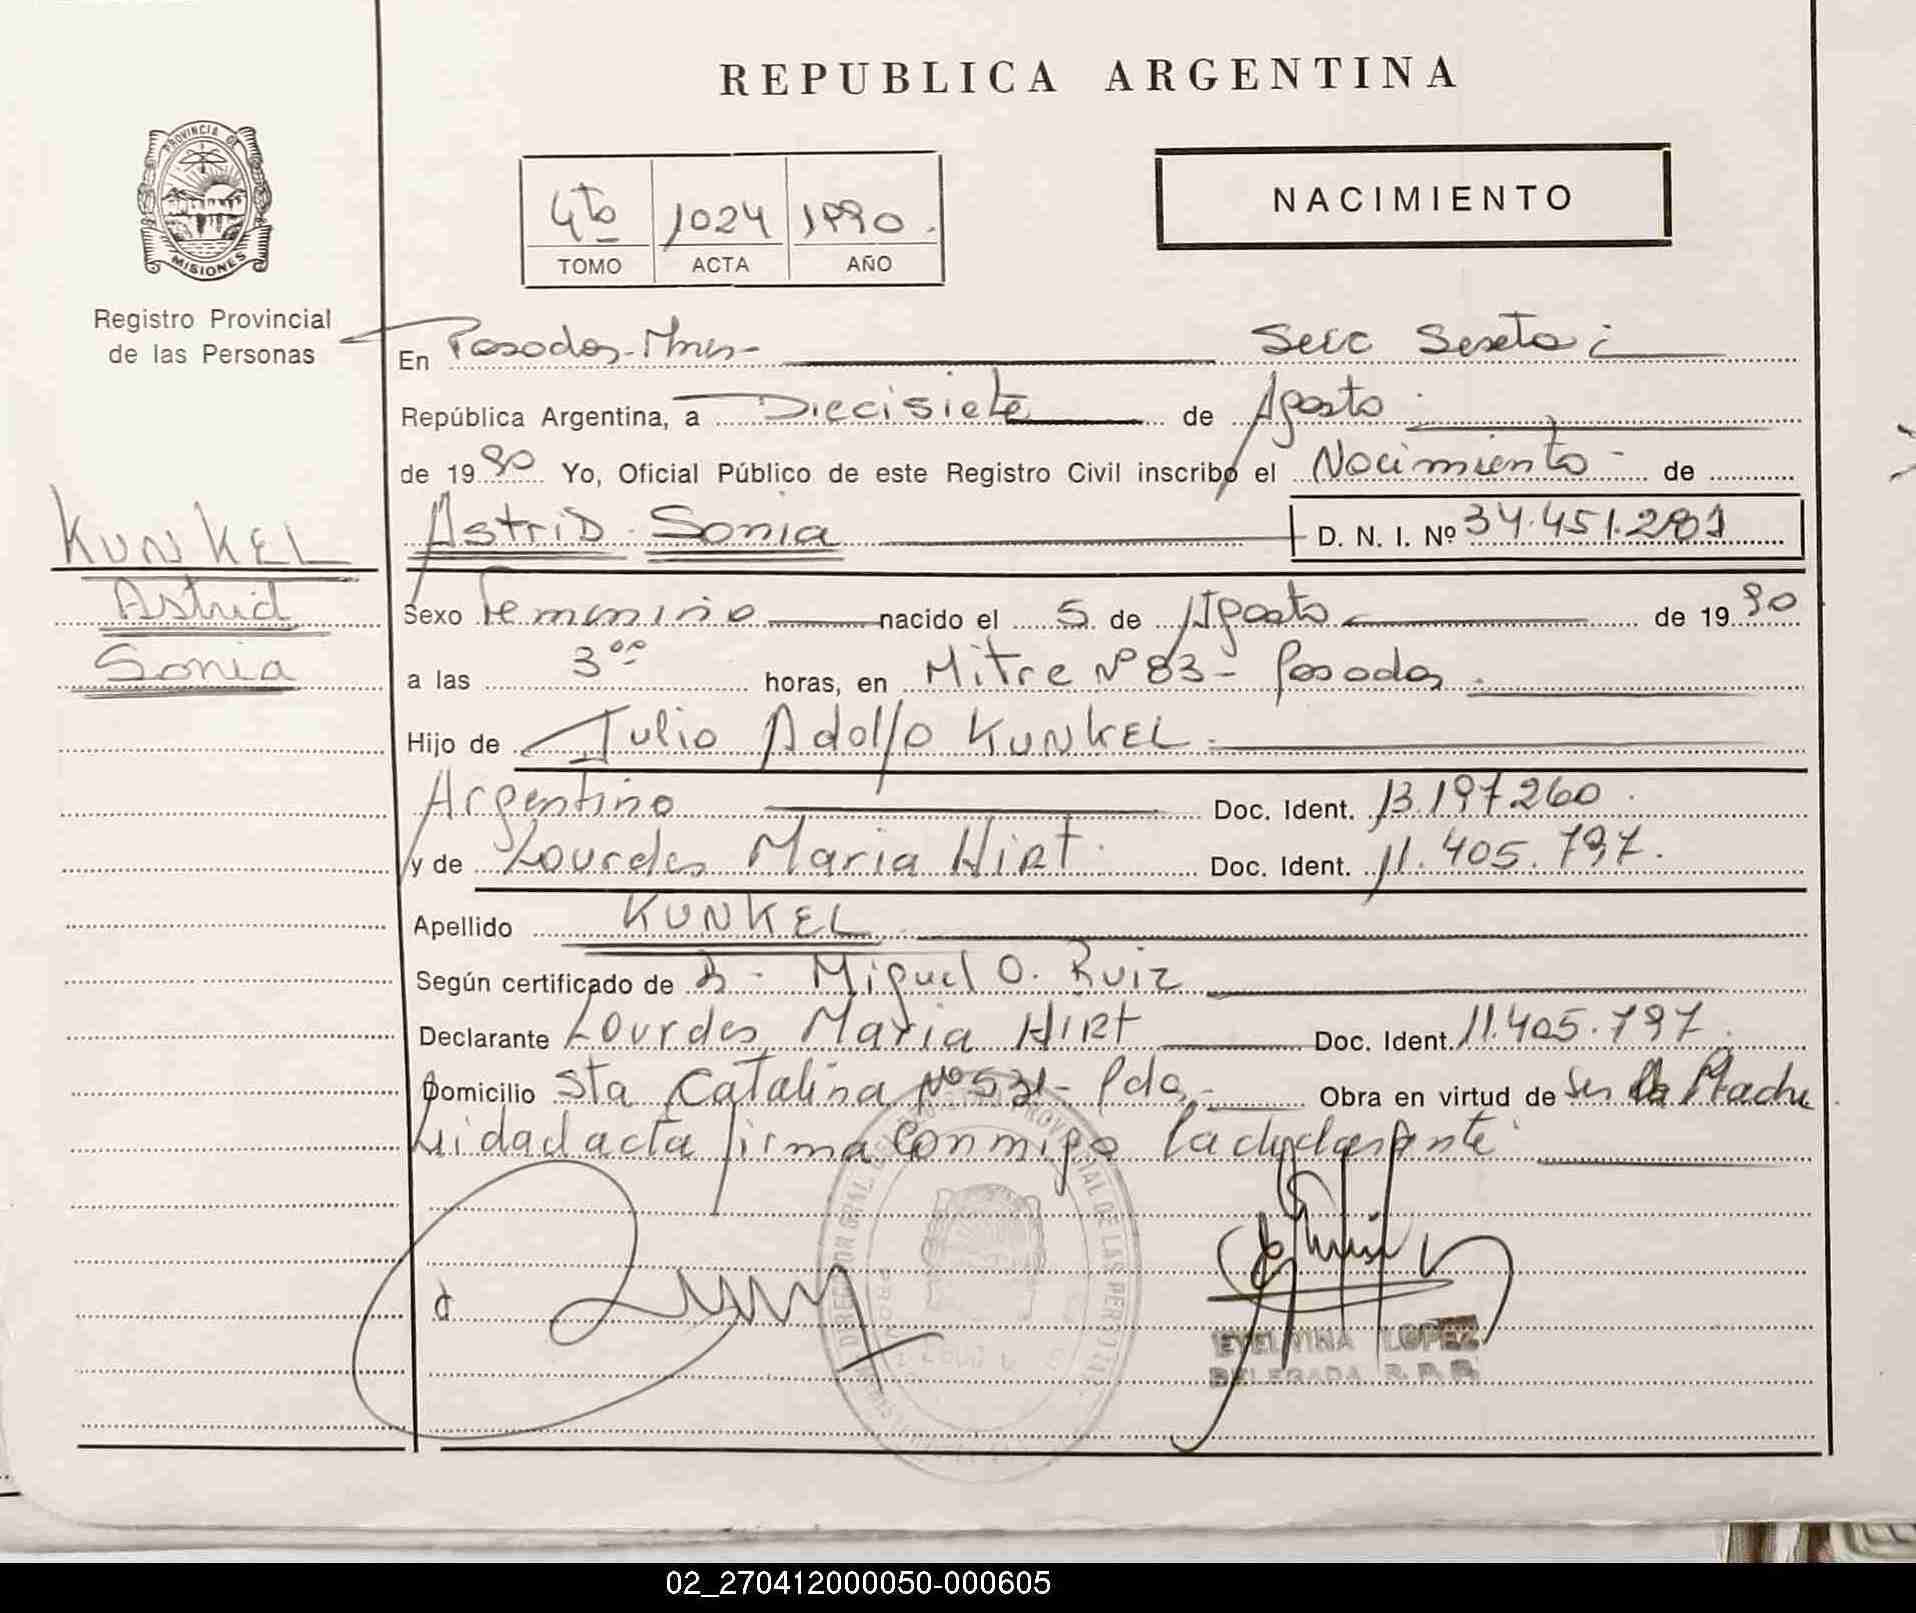 REPUBLICA ARGENTINA
PROVINCIA DE
MISIONES
Registro Provincial
de las Personas
4to 1024 1990.
TOMO ACTA AÑO
NACIMIENTO
En Posadas-Mnes- Secc Sexta
República Argentina, a Diecisiete de Agosto
de 1990 Yo, Oficial Público de este Registro Civil inscribo el Nacimiento de
KUNKEL
Astrid
Sonia
Astrid Sonia D. N. I. Nº 34.451.281
Sexo Femenino nacido el 5 de Agosto de 1990
a las 3 horas, en Mitre Nº 83- Posadas
Hijo de Julio Adolfo KUNKEL
Argentino Doc. Ident. 13.197.260
y de Lourdes Maria Hirt Doc. Ident. 11.405.797.
Apellido KUNKEL
Según certificado de Miguel O. Ruiz
Declarante Lourdes Maria Hirt Doc. Ident. 11.405.797
Domicilio Sta Catalina Nº 531- Pdas- Obra en virtud de Ser la Madre
Leida el acta firma conmigo la declarante
EVELVINA LOPEZ
DELEGADA R.P.P.
02_270412000050-000605